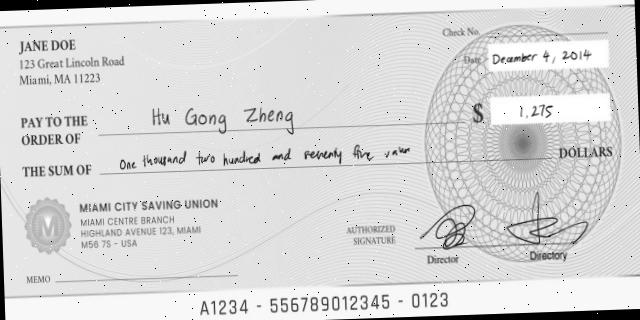 JANE DOE
123 Great Lincoln Road
Miami, MA 11223
Check No.
Date December 4, 2014
PAY TO THE
ORDER OF Hu Gong Zheng
$ 1,275
THE SUM OF One thousand two hundred and seventy five
DOLLARS
MIAMI CITY SAVING UNION
MIAMI CENTRE BRANCH
HIGHLAND AVENUE 123, MIAMI
M56 7S - USA
AUTHORIZED
SIGNATURE
Director
Directory
MEMO
A1234 - 556789012345 - 0123